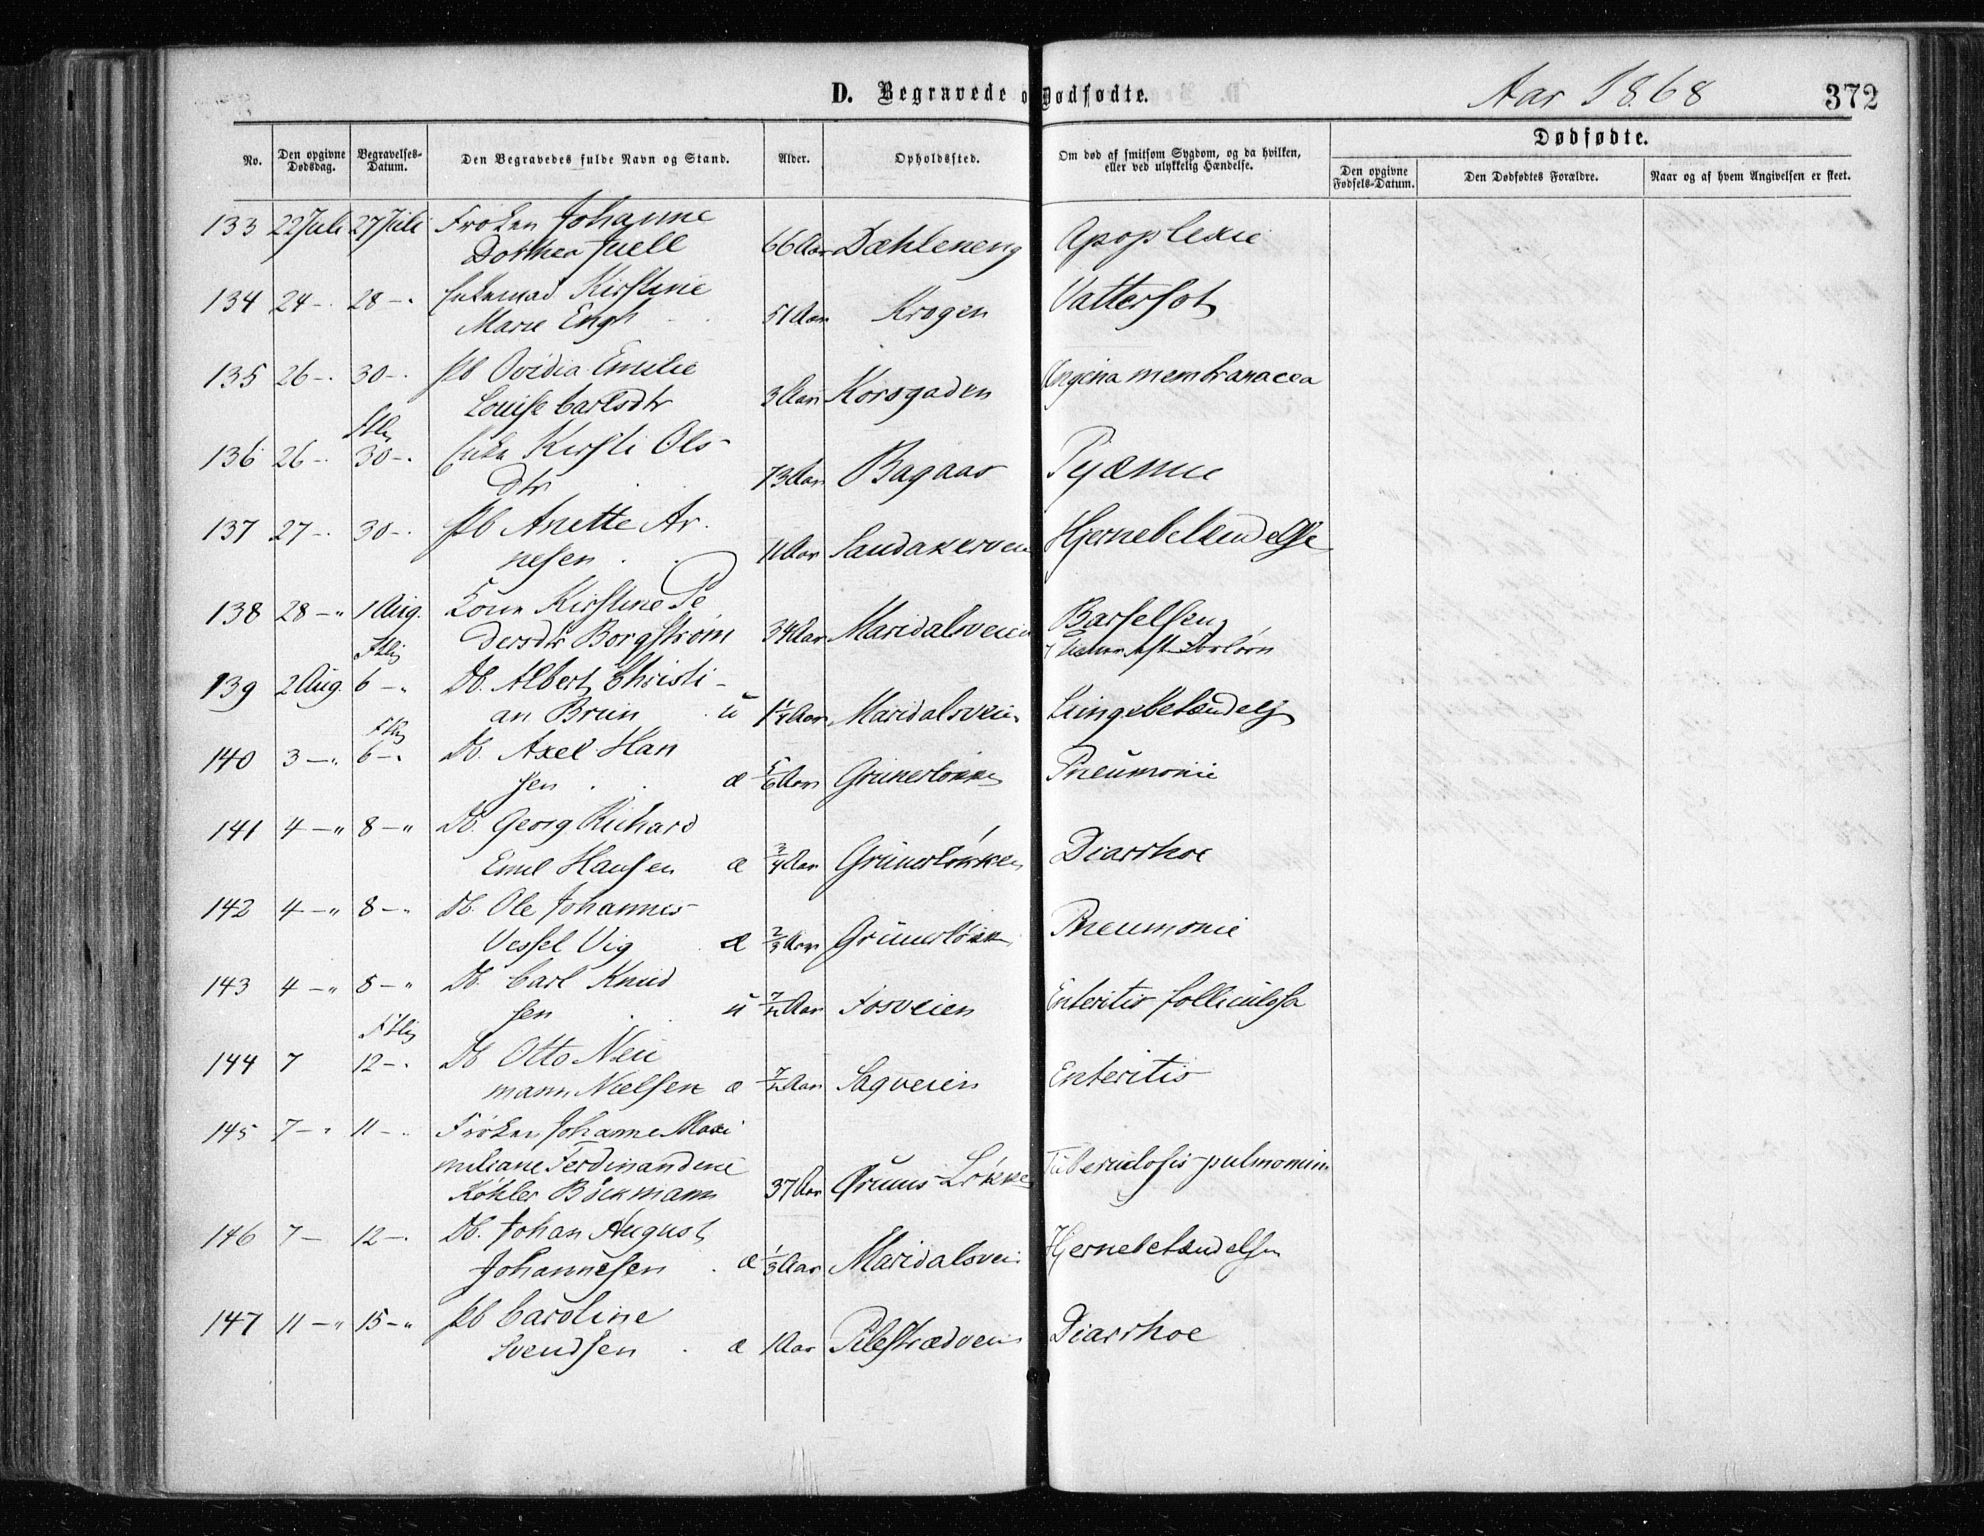 D. Begravede o Dødfødte. Aar 1868 372
No. Den opgivne Dødsdag. Begravelses-Datum. Den Begravedes fulde Navn og Stand. Alder. Opholdssted. Om død af smitsom Sygdom, og da hvilken, eller ved ulykkelig Hændelse. Dødfødte.
Den opgivne Fødsels-Datum. Den Dødfødtes Forældre. Naar og af hvem Angivelsen er skeet.
133 22 Juli 27 Juli Frøken Johanne
Dorthea Juell 66 Aar Dæhleneng Apoplexie
134 24 - 28 - Kirstine
Marie Engh 51 Aar Krogen Vattersot
135 26 - 30 - Pb Ovidia Emilie
Louise Carlsdtr 3 Aar Korsgaden Angina membranacea
136 26 - 30 - Enke Kirsti Ols-
dtr 73 Aar Bagaas Pyæmie
137 27 - 30 - Pb Anette Ar-
nesen 11 Aar Sandakerveien Hjernebetændelse
138 28 - " 1 Aug. Kone Kirstine Pe
dersdtr Borgstrøm 34 Aar Maridalsveien Barselseng
139 2 Aug. 6 - Db. Albert Christi-
an Brun u 1 1/4 Aar Maridalsveien Lungebetændelse
140 3 - " 6 - Db. Axel Han
sen æ 5/6 Aar Grünerløkken Pneumonie
141 4 - " 8 - " Db. Georg Richard
Emil Hansen æ 3/4 Aar Grünerløkken Diarrhoe
142 4 - " 8 - Db. Ole Johannes
Vessel Vig æ 2/3 Aar Grünerløkken Pneumonie
143 4 - " 8 - " Db. Carl Knud
sen u 7/12 Aar Fosveien Enteritis folliculosa
144 7 12 - Db Otto Neu
mann Nielsen æ 7/12 Aar Sagveien Enteritis
145 7 - " 11 - Frøken Johanne Maxi
miliane Ferdinandine
Köhler Böckmann 37 Aar Grüners Løkke Tuberculosis pulmonum
146 7 - 12 - Db. Johan August
Johannesen æ 1/3 Aar Maridalsvei Hjernebetændelsen
147 11 - " 15 - " Pb Caroline
Svendsen æ 1 Aar Pilestrædveien Diarrhoe